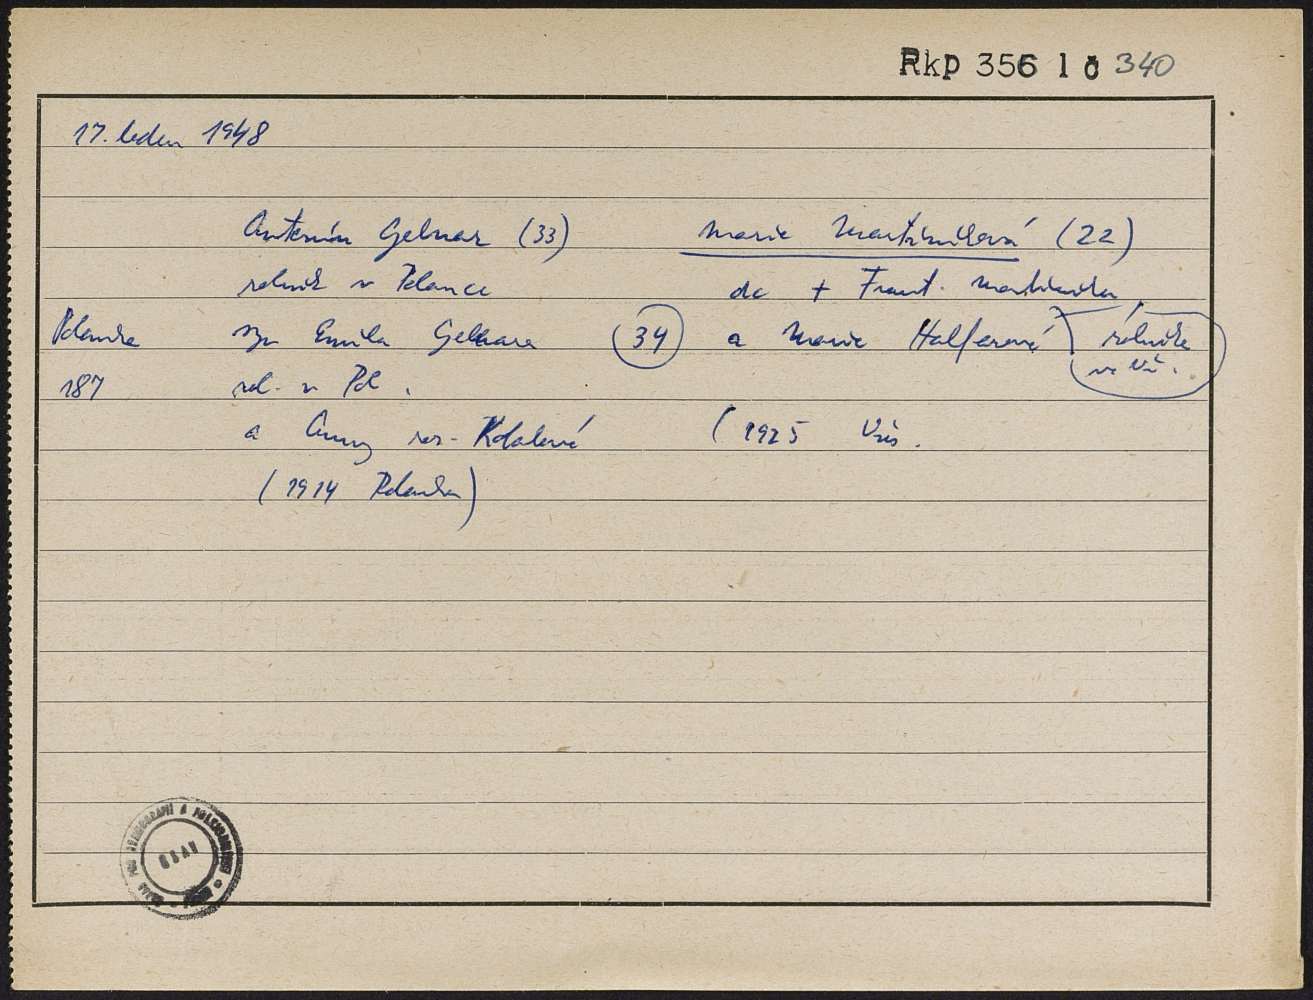 Rkp 356 1 č 340
17. leden 1948
Antonín Gelnar (33) Marie Martiníková (22)
rolník v Polance dc + Frant. Martiníka,
Polanka syn Emila Gelnara 34 a Marie Halferové rolníka
187 rol. v Pol. ve Vš.
a Anny roz. Kolalové (1925 Vřes.
(1914 Polanka)